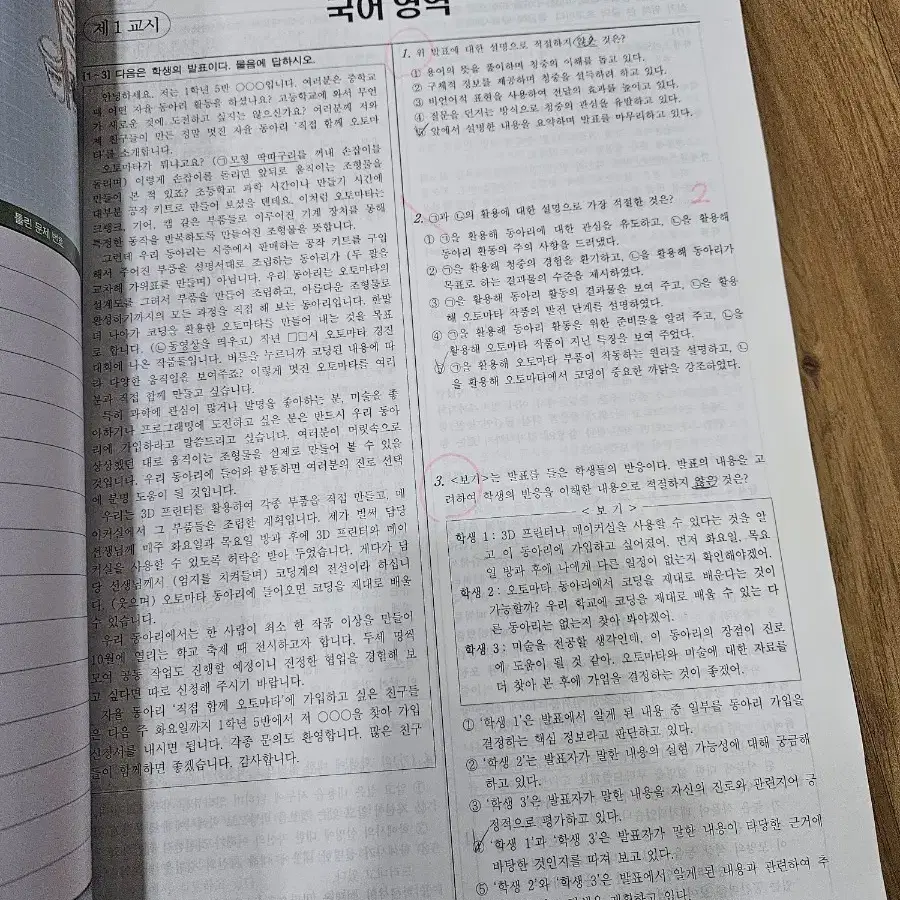 국어 영역
제 1 교시
틀린 문제 번호
[1~3] 다음은 학생의 발표이다. 물음에 답하시오.
안녕하세요. 저는 1학년 5반 ○○○입니다. 여러분은 중학교
때 어떤 자율 동아리 활동을 하셨나요? 고등학교에 와서 무언
가 새로운 것에 도전하고 싶지는 않으신가요? 여러분께 저와
제 친구들이 만든 정말 멋진 자율 동아리 '직접 함께 오토마
타'를 소개합니다.
오토마타가 뭐냐고요? (㉠모형 딱따구리를 꺼내 손잡이를
돌리며) 이렇게 손잡이를 돌리면 앞뒤로 움직이는 조형물을
만들어 본 적 있죠? 초등학교 과학 시간이나 만들기 시간에
대부분 공작 키트로 만들어 보셨을 텐데요. 이처럼 오토마타는
크랭크, 기어, 캠 같은 부품들로 이루어진 기계 장치를 통해
특정한 동작을 반복하도록 만들어진 조형물을 뜻합니다.
그런데 우리 동아리는 시중에서 판매하는 공작 키트를 구입
해서 주어진 부품을 설명서대로 조립하는 동아리가 (두 팔을
교차해 가위표를 만들며) 아닙니다. 우리 동아리는 오토마타의
설계도를 그려서 부품을 만들어 조립하고, 아름다운 조형물로
완성하기까지의 모든 과정을 직접 해 보는 동아리입니다. 한발
더 나아가 코딩을 활용한 오토마타를 만들어 내는 것을 목표
로 합니다. (㉡동영상을 띄우고) 작년 □□시 오토마타 경진
대회에 나온 작품들입니다. 버튼을 누르니까 코딩된 내용에 따
라 다양한 움직임을 보여주죠? 이렇게 멋진 오토마타를 여러
분과 직접 함께 만들고 싶습니다.
특히 과학에 관심이 많거나 발명을 좋아하는 분, 미술을 좋
아하거나 프로그래밍에 도전하고 싶은 분은 반드시 우리 동아
리에 가입하라고 말씀드리고 싶습니다. 여러분이 머릿속으로
상상했던 대로 움직이는 조형물을 실제로 만들어 볼 수 있을
것입니다. 우리 동아리에 들어와 활동하면 여러분의 진로 선택
에 분명 도움이 될 것입니다.
우리는 3D 프린터를 활용하여 각종 부품을 직접 만들고, 메
이커실에서 그 부품들을 조립할 계획입니다. 제가 벌써 담당
선생님께 매주 화요일과 목요일 방과 후에 3D 프린터와 메이
커실을 사용할 수 있도록 허락을 받아 두었습니다. 게다가 담
당 선생님께서 (엄지를 치켜들며) 코딩계의 전설이라 하십니
다. (웃으며) 오토마타 동아리에 들어오면 코딩을 제대로 배울
수 있습니다.
우리 동아리에서는 한 사람이 최소 한 작품 이상을 만들어
10월에 열리는 학교 축제 때 전시하고자 합니다. 두세 명씩
모여 공동 작업도 진행할 예정이니 진정한 협업을 경험해 보
고 싶다면 따로 신청해 주시기 바랍니다.
자율 동아리 '직접 함께 오토마타'에 가입하고 싶은 친구들
은 다음 주 화요일까지 1학년 5반에서 저 ○○○을 찾아 가입
신청서를 내시면 됩니다. 각종 문의도 환영합니다. 많은 친구
들이 함께하면 좋겠습니다. 감사합니다.
1. 위 발표에 대한 설명으로 적절하지 않은 것은?
① 용어의 뜻을 풀이하며 청중의 이해를 돕고 있다.
② 구체적 정보를 제공하며 청중을 설득하려 하고 있다.
③ 비언어적 표현을 사용하여 전달의 효과를 높이고 있다.
④ 질문을 던지는 방식으로 청중의 관심을 유발하고 있다.
⑤ 앞에서 설명한 내용을 요약하며 발표를 마무리하고 있다.
2
2. ㉠과 ㉡의 활용에 대한 설명으로 가장 적절한 것은?
① ㉠을 활용해 동아리에 대한 관심을 유도하고, ㉡을 활용해
동아리 활동의 주의 사항을 드러냈다.
② ㉠을 활용해 청중의 경험을 환기하고, ㉡을 활용해 동아리가
목표로 하는 결과물의 수준을 제시하였다.
③ ㉠을 활용해 동아리 활동의 결과물을 보여 주고, ㉡을 활용
해 오토마타 작품의 발전 단계를 설명하였다.
④ ㉠을 활용해 동아리 활동을 위한 준비물을 알려 주고, ㉡을
활용해 오토마타 작품이 지닌 특징을 보여 주었다.
⑤ ㉠을 활용해 오토마타 부품이 작동하는 원리를 설명하고, ㉡
을 활용해 오토마타에서 코딩이 중요한 까닭을 강조하였다.
3. <보기>는 발표를 들은 학생들의 반응이다. 발표의 내용을 고
려하여 학생의 반응을 이해한 내용으로 적절하지 않은 것은?
< 보 기 >
학생 1 : 3D 프린터나 메이커실을 사용할 수 있다는 것을 알
고 이 동아리에 가입하고 싶어졌어. 먼저 화요일, 목요
일 방과 후에 나에게 다른 일정이 없는지 확인해야겠어.
학생 2 : 오토마타 동아리에서 코딩을 제대로 배운다는 것이
가능할까? 우리 학교에 코딩을 제대로 배울 수 있는 다
른 동아리는 없는지 찾아 봐야겠어.
학생 3 : 미술을 전공할 생각인데, 이 동아리의 장점이 진로
에 도움이 될 것 같아. 오토마타와 미술에 대한 자료를
더 찾아 본 후에 가입을 결정하는 것이 좋겠어.
① '학생 1'은 발표에서 알게 된 내용 중 일부를 동아리 가입을
결정하는 핵심 정보라고 판단하고 있다.
② '학생 2'는 발표자가 말한 내용의 실현 가능성에 대해 궁금해
하고 있다.
③ '학생 3'은 발표자가 말한 내용을 자신의 진로와 관련지어 긍
정적으로 평가하고 있다.
④ '학생 1'과 '학생 3'은 발표자가 말한 내용이 타당한 근거에
바탕한 것인지를 따져 보고 있다.
⑤ '학생 2'와 '학생 3'은 발표에서 알게 된 내용과 관련하여 추
계획하고 있다.